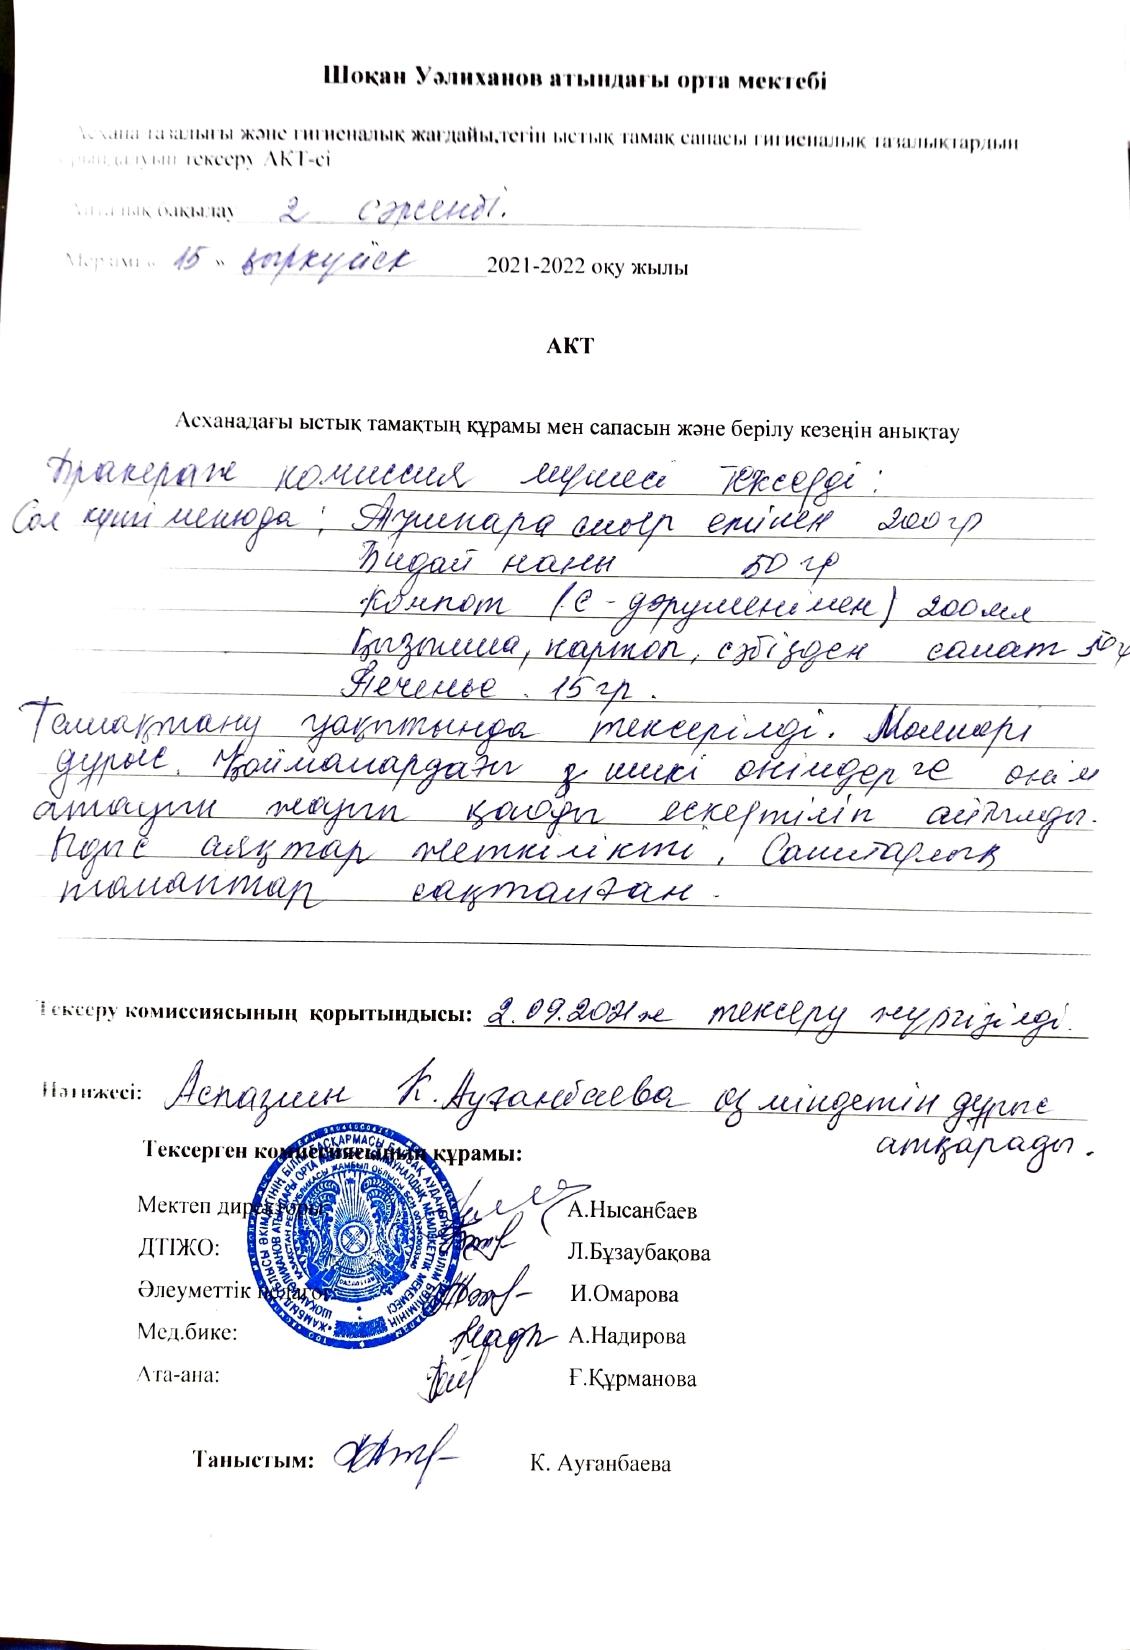 Шоқан Уәлиханов атындағы орта мектебі
Асхана тазалығы және гигиеналық жағдайы,тегін ыстық тамақ сапасы гигиеналық тазалықтардың
орындалуын тексеру АКТ-сі
Апталық бақылау 2 сәрсенбі.
Мерзімі « 15 » қыркүйек 2021-2022 оқу жылы
АКТ
Асханадағы ыстық тамақтың құрамы мен сапасын және берілу кезеңін анықтау
Бракераж комиссия мүшесі тексерді:
Сол күні менюда: Атшпара сиыр етінен 200 гр
Бидай наны 50 гр
Компот (С - дәруменімен) 200 мл
Қызылша, картоп, сәбізден салат 50 г
Печенье . 15 гр .
Тамақтану уақытында тексерілді. Мөлшері
дұрыс. Қоймалардағы шикі өнімдерге өнім
атауын жазып қоюды ескертіліп айтылды.
Ыдыс аяқтар жеткілікті, Санитарлық
талаптар сақталған .
Тексеру комиссиясының қорытындысы: 2.09.2021ж тексеру жүргізілді.
Нәтижесі: Аспазшы К.Ауғанбаева өз міндетін дұрыс
атқарады .
Тексерген комиссиясының құрамы:
Мектеп директоры А.Нысанбаев
ДТІЖО: Л.Бұзаубақова
Әлеуметтік педагог: И.Омарова
Мед.бике: А.Надирова
Ата-ана: Ғ.Құрманова
Таныстым: К. Ауғанбаева